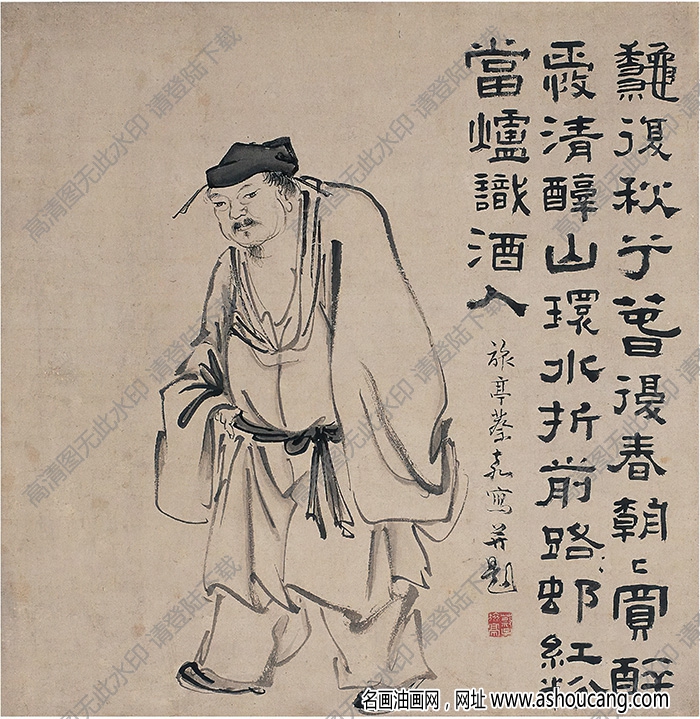 復秋兮萅復春朝〻買醉
清醇山環水折前路邨紅粉
當爐識酒人
旅亭蔡嘉寫并題
高清图无此水印 请登陆下载
高清图无此水印 请登陆下载
高清图无此水印 请登陆下载
高清图无此水印 请登陆下载
名画油画网，网址 www.ashoucang.com